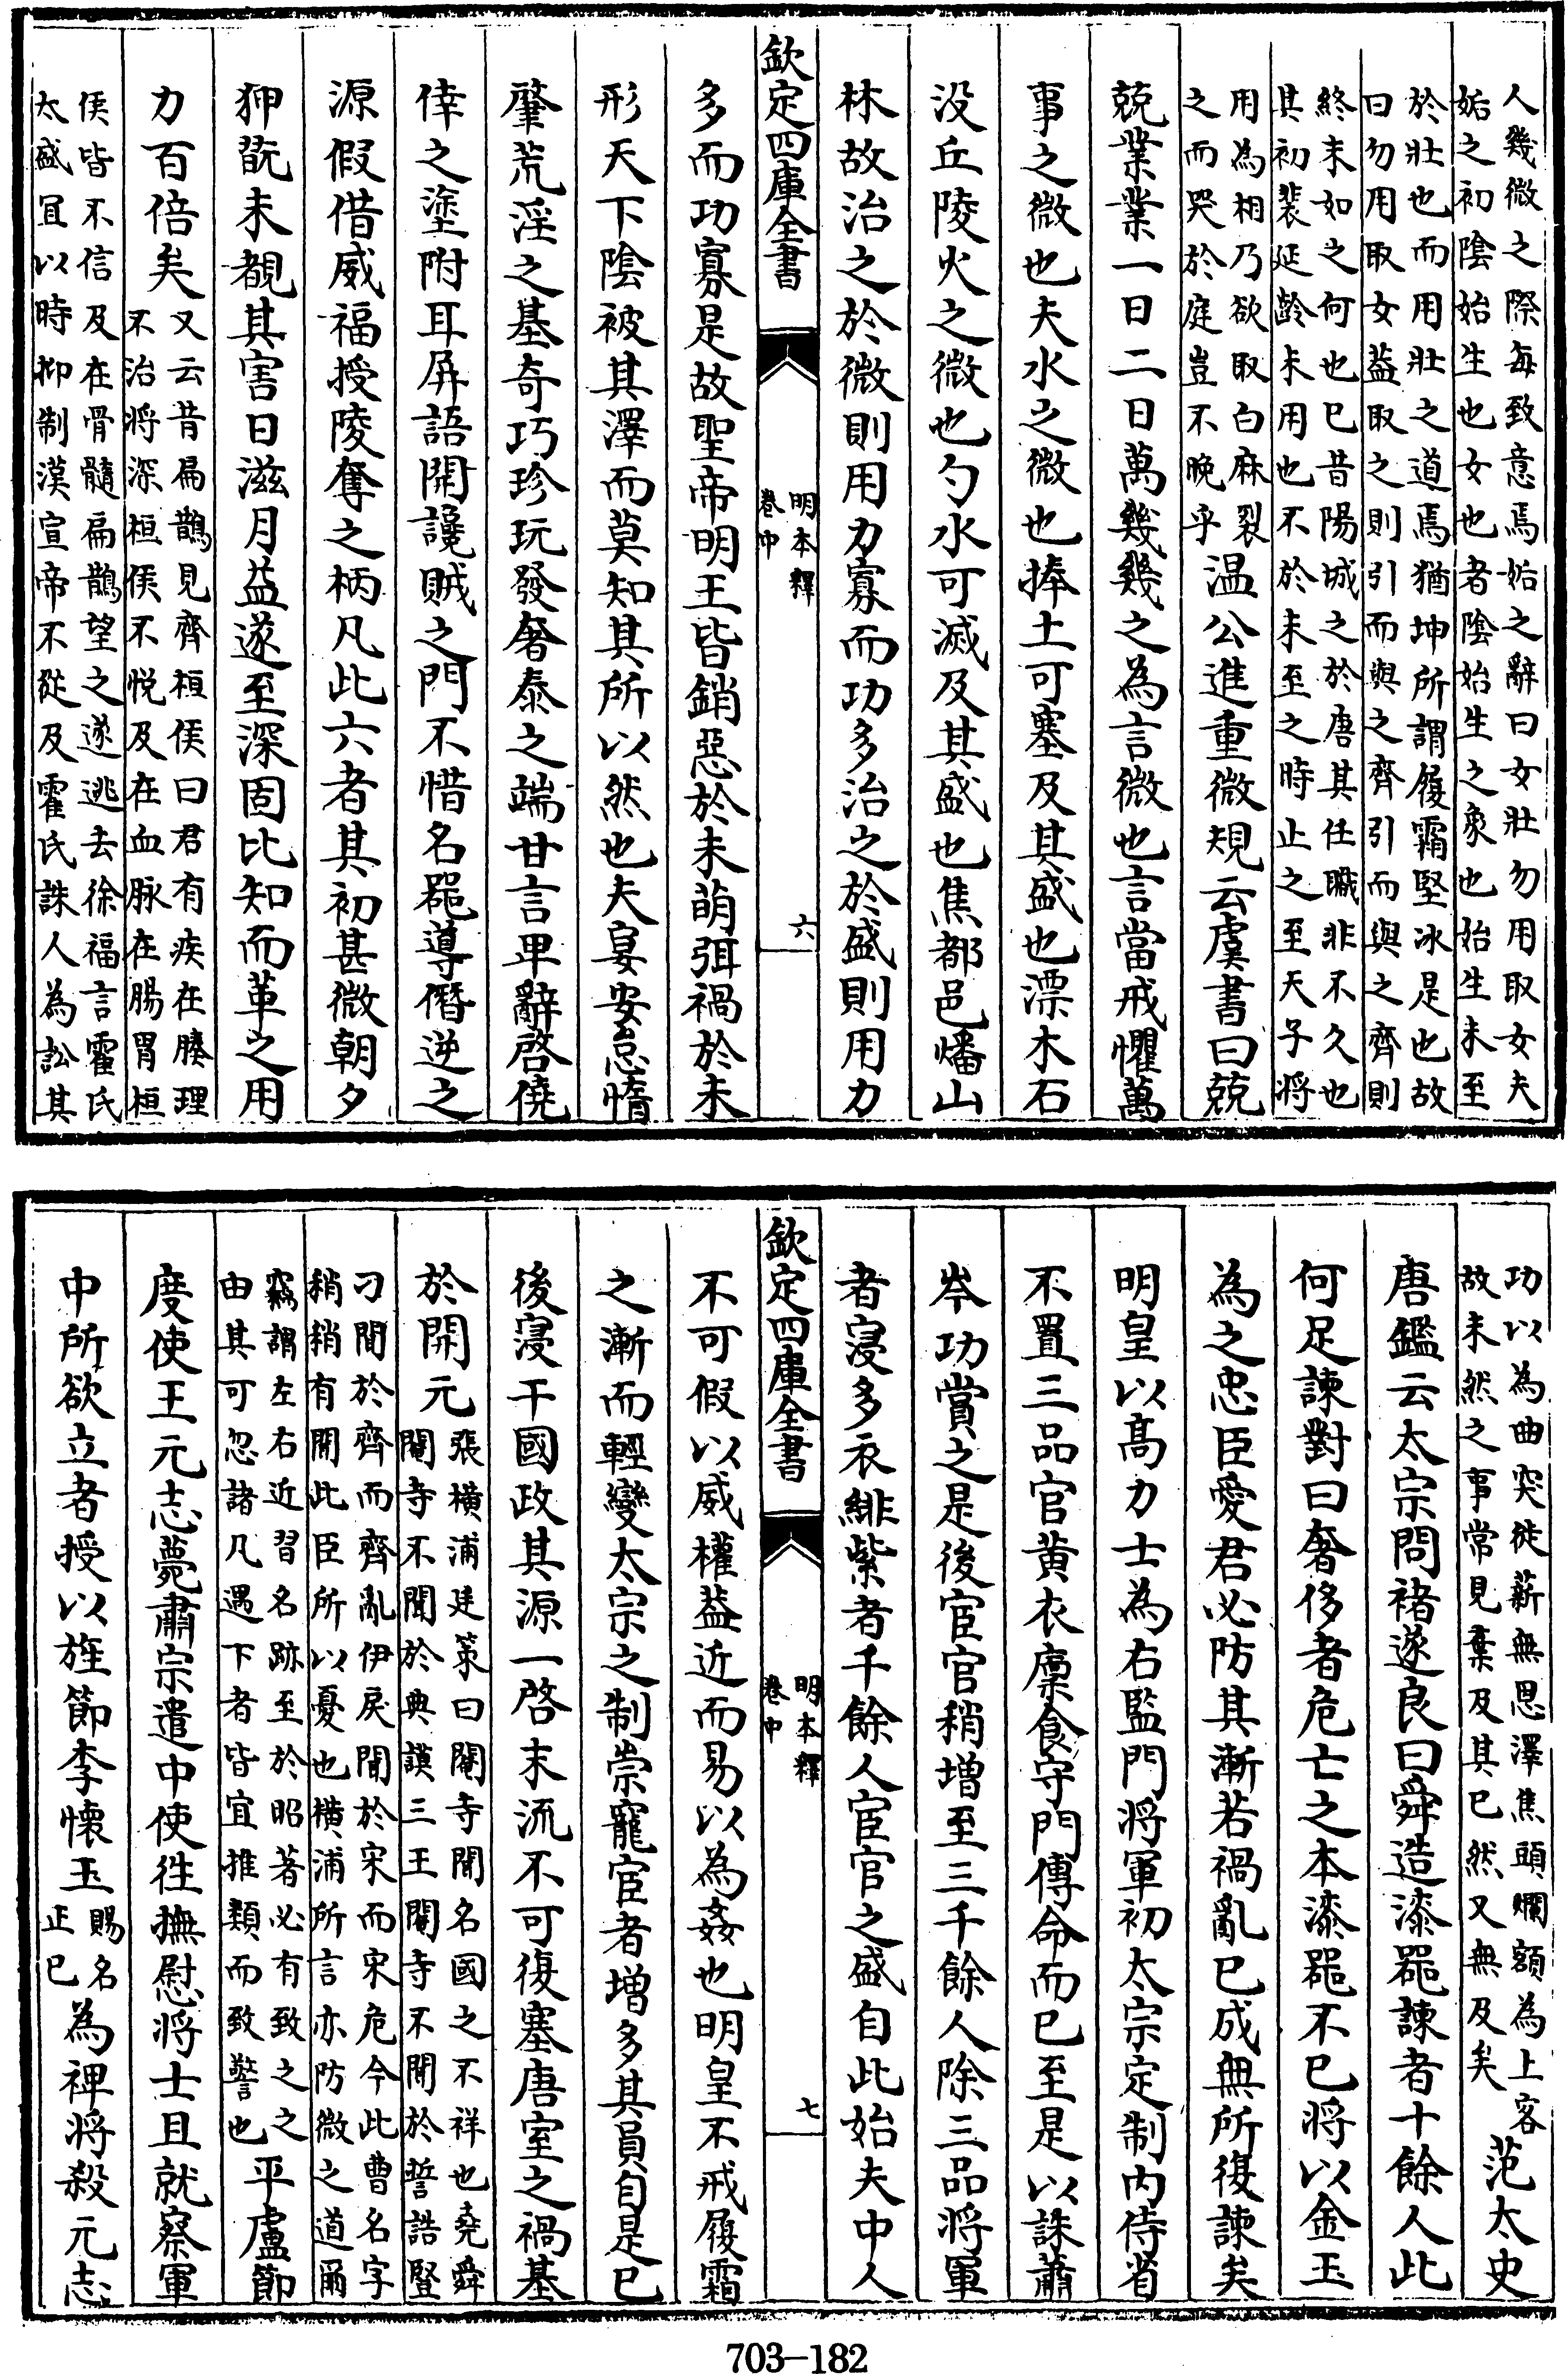 人幾微之際每致意焉姤之辭曰女壯勿用取女夫
姤之初陰始生也女也者陰始生之象也始生未至
於壯也而用壯之道焉猶坤所謂履霜堅冰是也故
曰勿用取女葢取之則引而與之齊引而與之齊則
終末如之何也已昔陽城之於唐其任職非不久也
其初裴延齡未用也不於未至之時止之至天子将
用為相乃欲取白麻裂
之而哭於庭豈不晚乎
温公進重微規云虞書曰兢
兢業業一日二日萬幾幾之為言微也言當戒懼萬
事之微也夫水之微也捧土可塞及其盛也漂木石
没丘陵火之微也勺水可滅及其盛也焦都邑燔山
林故治之於微則用力寡而功多治之於盛則用力
欽定四庫全書
明本釋
卷中
六
多而功寡是故聖帝明王皆銷惡於未萌弭禍於未
形天下陰被其澤而莫知其所以然也夫宴安怠惰
肇荒淫之基奇巧珍玩發奢泰之端甘言卑辭啓僥
倖之塗附耳屏語開讒賊之門不惜名器導僭逆之
源假借威福授陵奪之柄凡此六者其初甚微朝夕
狎翫未覩其害日滋月益遂至深固比知而革之用
力百倍矣
又云昔扁鵲見齊桓侯曰君有疾在腠理
不治将深桓侯不悦及在血脉在腸胃桓
侯皆不信及在骨髓扁鵲望之遂逃去徐福言霍氏
太盛宜以時抑制漢宣帝不從及霍氏誅人為訟其
功以為曲突徙薪無恩澤焦頭爛額為上客
故未然之事常見棄及其已然又無及矣
范太史
唐鑑云太宗問褚遂良曰舜造漆器諫者十餘人此
何足諫對曰奢侈者危亡之本漆器不已将以金玉
為之忠臣愛君必防其漸若禍亂已成無所復諫矣
明皇以髙力士為右監門将軍初太宗定制内侍省
不置三品官黄衣廪食守門傳命而已至是以誅蕭
岑功賞之是後宦官稍增至三千餘人除三品将軍
者寖多衣緋紫者千餘人宦官之盛自此始夫中人
欽定四庫全書
明本釋
卷中
七
不可假以威權葢近而易以為姦也明皇不戒履霜
之漸而輕變太宗之制崇寵宦者增多其員自是已
後寖干國政其源一啓末流不可復塞唐室之禍基
於開元
張横浦廷策曰閹寺聞名國之不祥也堯舜
閹寺不聞於典謨三王閹寺不聞於誓誥豎
刁聞於齊而齊亂伊戾聞於宋而宋危今此曹名字
稍稍有聞此臣所以憂也横浦所言亦防微之道爾
竊謂左右近習名跡至於昭著必有致之之
由其可忽諸凡遇下者皆宜推類而致警也
平盧節
度使王元志薨肅宗遣中使徃撫慰将士且就察軍
中所欲立者授以旌節李懐玉
賜名
正已
為裨将殺元志
703-182